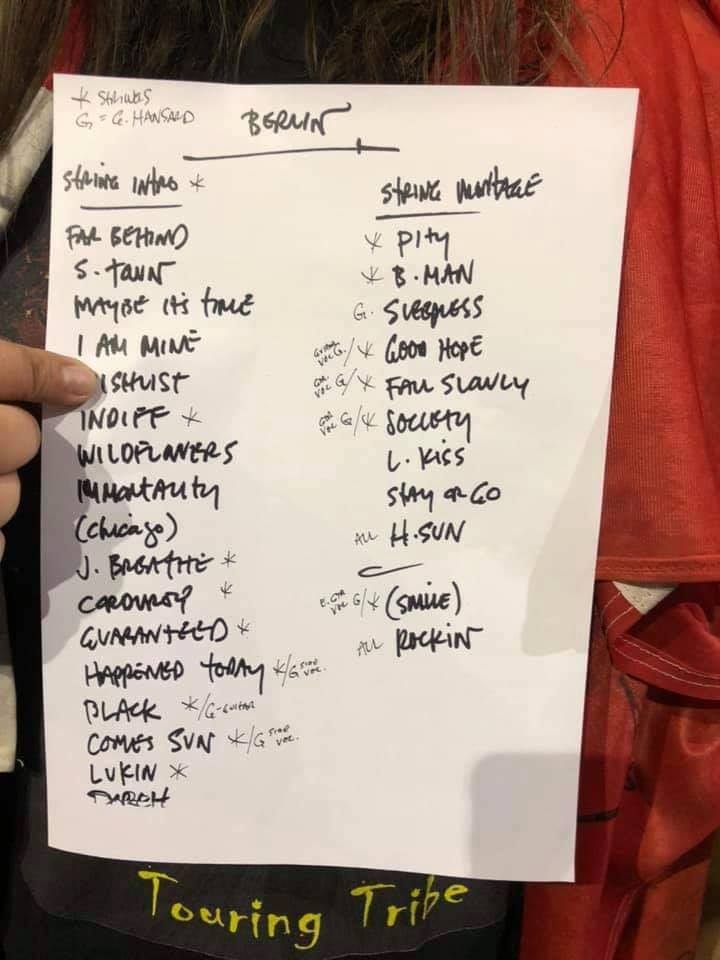 * STRINGS
G = G. HANSARD
BERLIN
STRING INTRO *
FAR BEHIND
S. TOWN
MAYBE IT'S TIME
I AM MINE
ISHLIST
INDIFF *
WILDFLOWERS
IMMORTALITY
(chicago)
J. BREATHE *
CORDUROY *
GUARANTEED *
HAPPENED TODAY */G SIDE VOC.
BLACK */G-GUITAR
COMES SUN */G SIDE VOC.
LUKIN *
STRING MONTAGE
* PITY
* B.MAN
G. SLEEPLESS
GUITAR VOC G./* GOOD HOPE
GTR VOC G/* FALL SLOWLY
GTR VOC G/* SOCIETY
L. KISS
STAY OR GO
ALL H.SUN
E. GTR VOC G/* (SMILE)
ALL ROCKIN
Touring Tribe